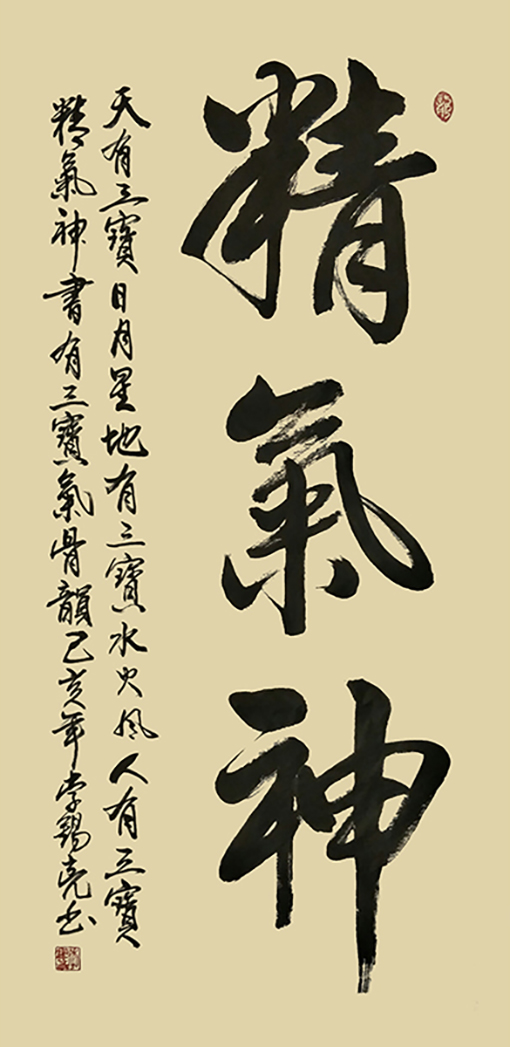 精氣神
天有三寶日月星地有三寶水火風人有三寶
精氣神書有三寶氣骨韻己亥年李錫堯書